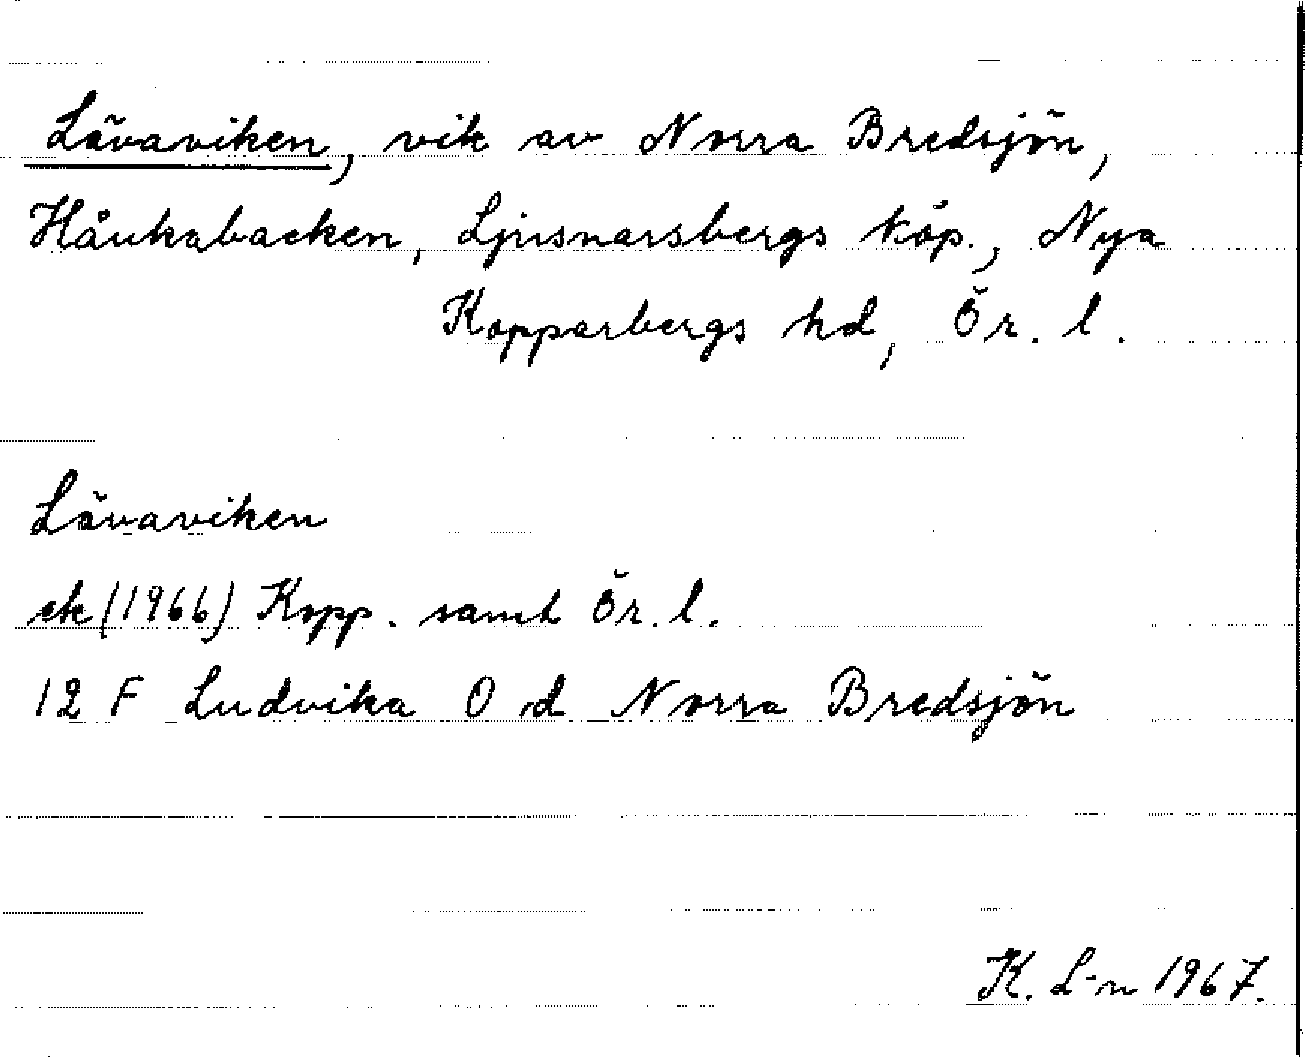 Lövaviken, vik av Norra Bredsjön,
Håukabacken, Ljusnarsbergs köp., Nya
Kopparbergs hd, Ör. l.
Lövaviken
ek (1966) Kopp. samt Ör. l.
12 F Ludvika O d Norra Bredsjön
K. L-n 1967.